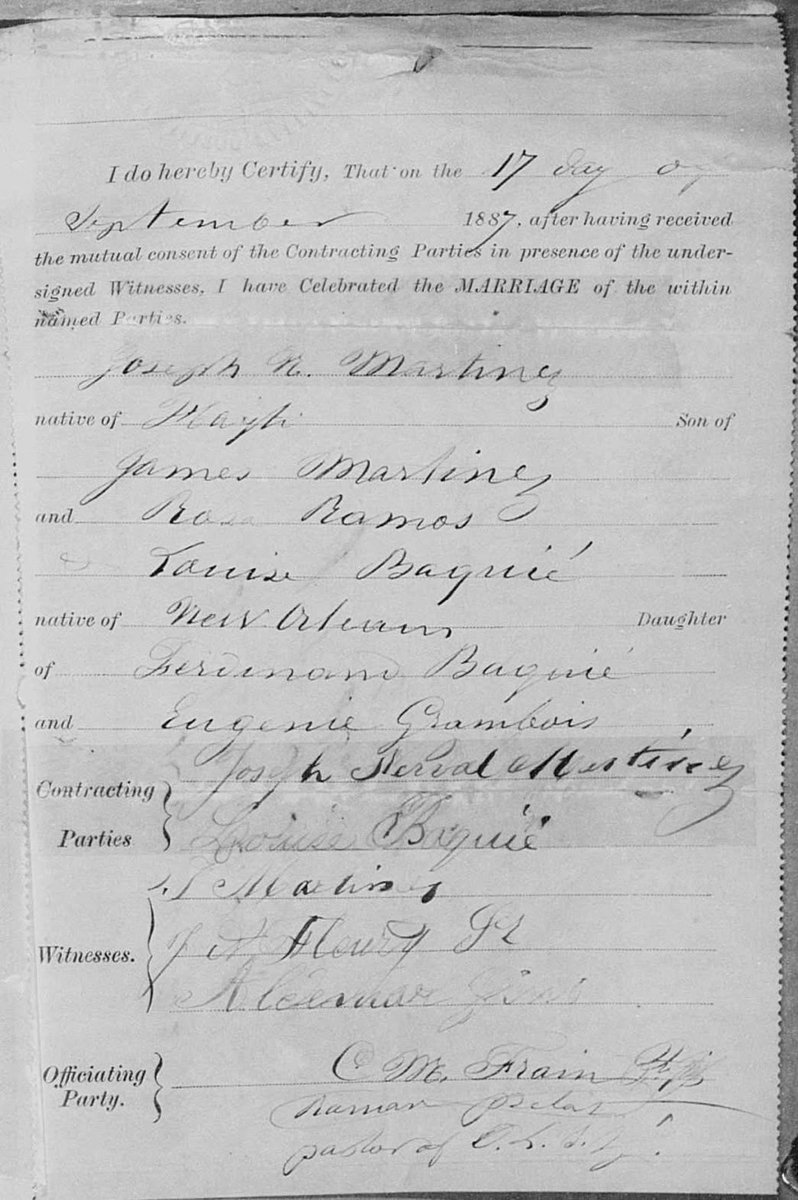 I do hereby Certify, That on the 17 day of
September 1887, after having received
the mutual consent of the Contracting Parties in presence of the under-
signed Witnesses, I have Celebrated the MARRIAGE of the within
named Parties.
Joseph N. Martinez
native of Hayti Son of
James Martinez
and Rosa Ramos
Louise Baquié
native of New Orleans Daughter
of Ferdinand Baquié
and Eugenie Grambois
Contracting Parties
Joseph Nerval Martinez
Louise Baquié
Witnesses.
J Martinez
J N. Fleury Jr
Officiating Party.
C M. Frain
pastor of O. L. S. H.